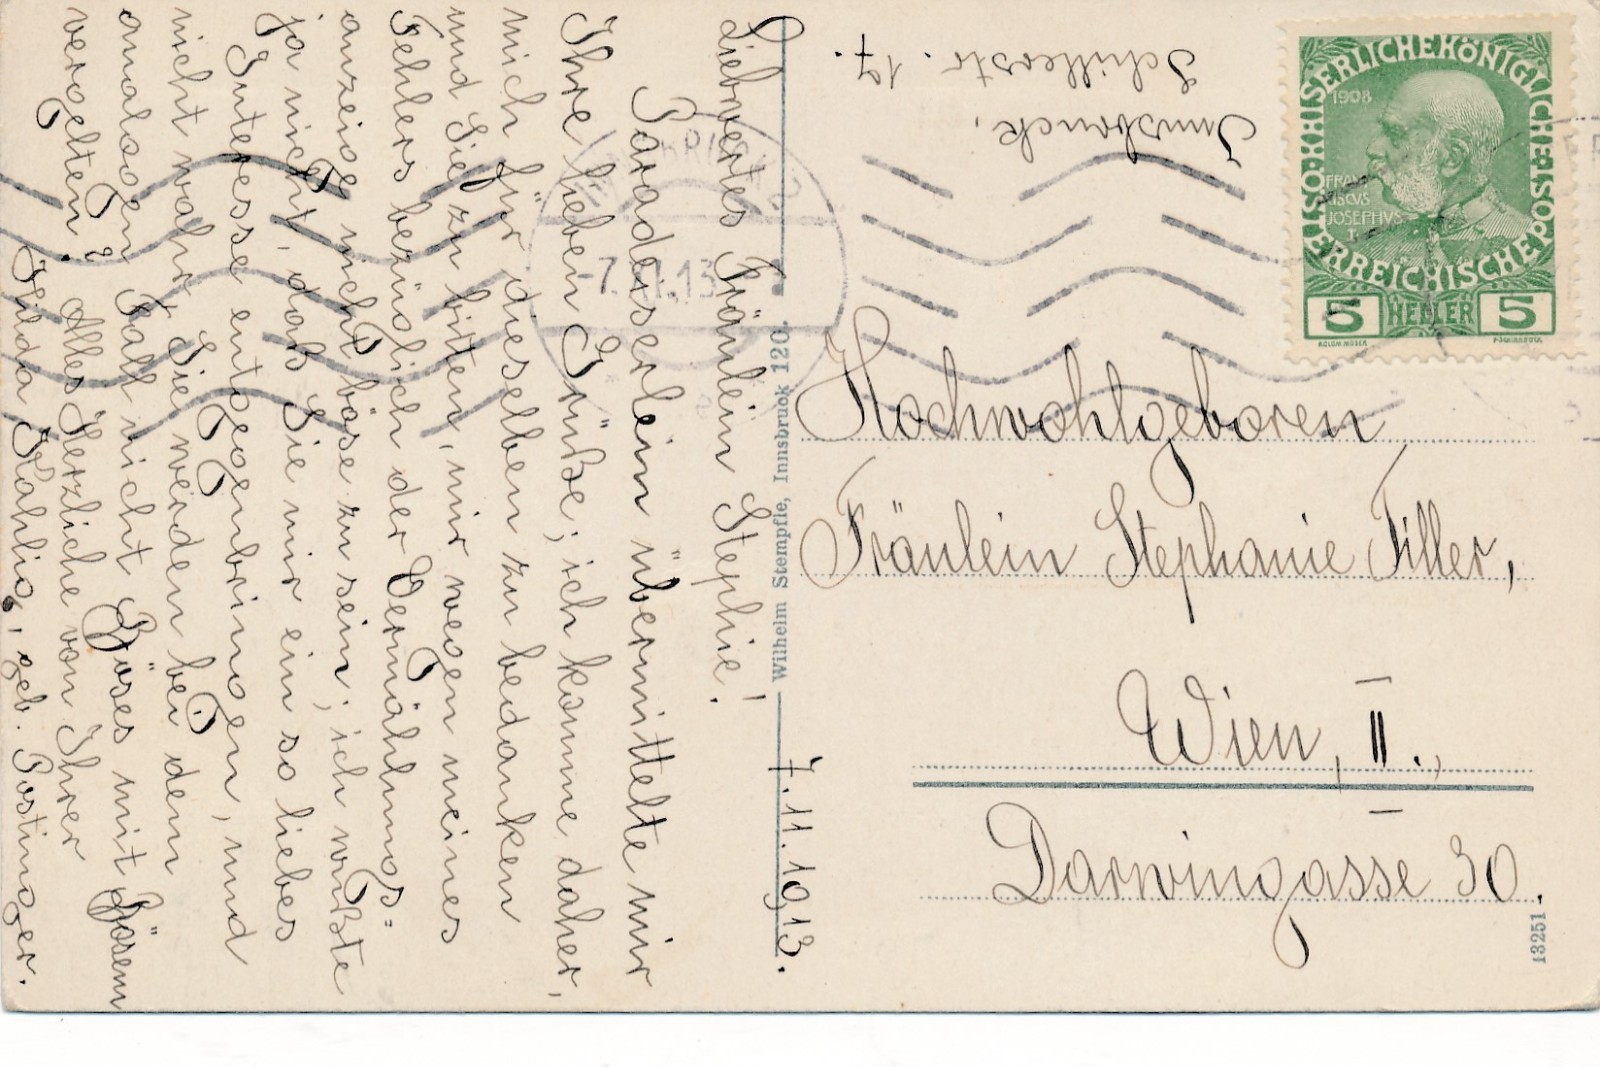 Innsbruck,
Schillerstr. 17.
7. 11. 1913.
Liebwertes Fräulein Stephie!
Paradeiserlein übermittelte mir
Ihre lieben Grüße; ich komme daher,
mich für dieselben zu bedanken
und Sie zu bitten, mir wegen meines
Fehlers bezüglich der Vermählungs=
anzeige nicht böse zu sein; ich wußte
ja nicht, daß Sie mir ein so liebes
Interesse entgegenbringen, und
nicht wahr, Sie werden bei dem
analogen Fall nicht Böses mit Bösem
vergelten? Alles Herzliche von Ihrer
Jedda Kahlig, geb. Postinger.
Hochwohlgeboren
Fräulein Stephanie Filler,
Wien, II.,
Darwingasse 30.
Wilhelm Stempfle, Innsbruck 120.
13251
KAISERLICHE KÖNIGLICHE
ÖSTERREICHISCHE POST
1908
FRAN
CISCVS
JOSEPHVS
I
5 HELLER 5
KOLOM. MOSER
-7.XI.13